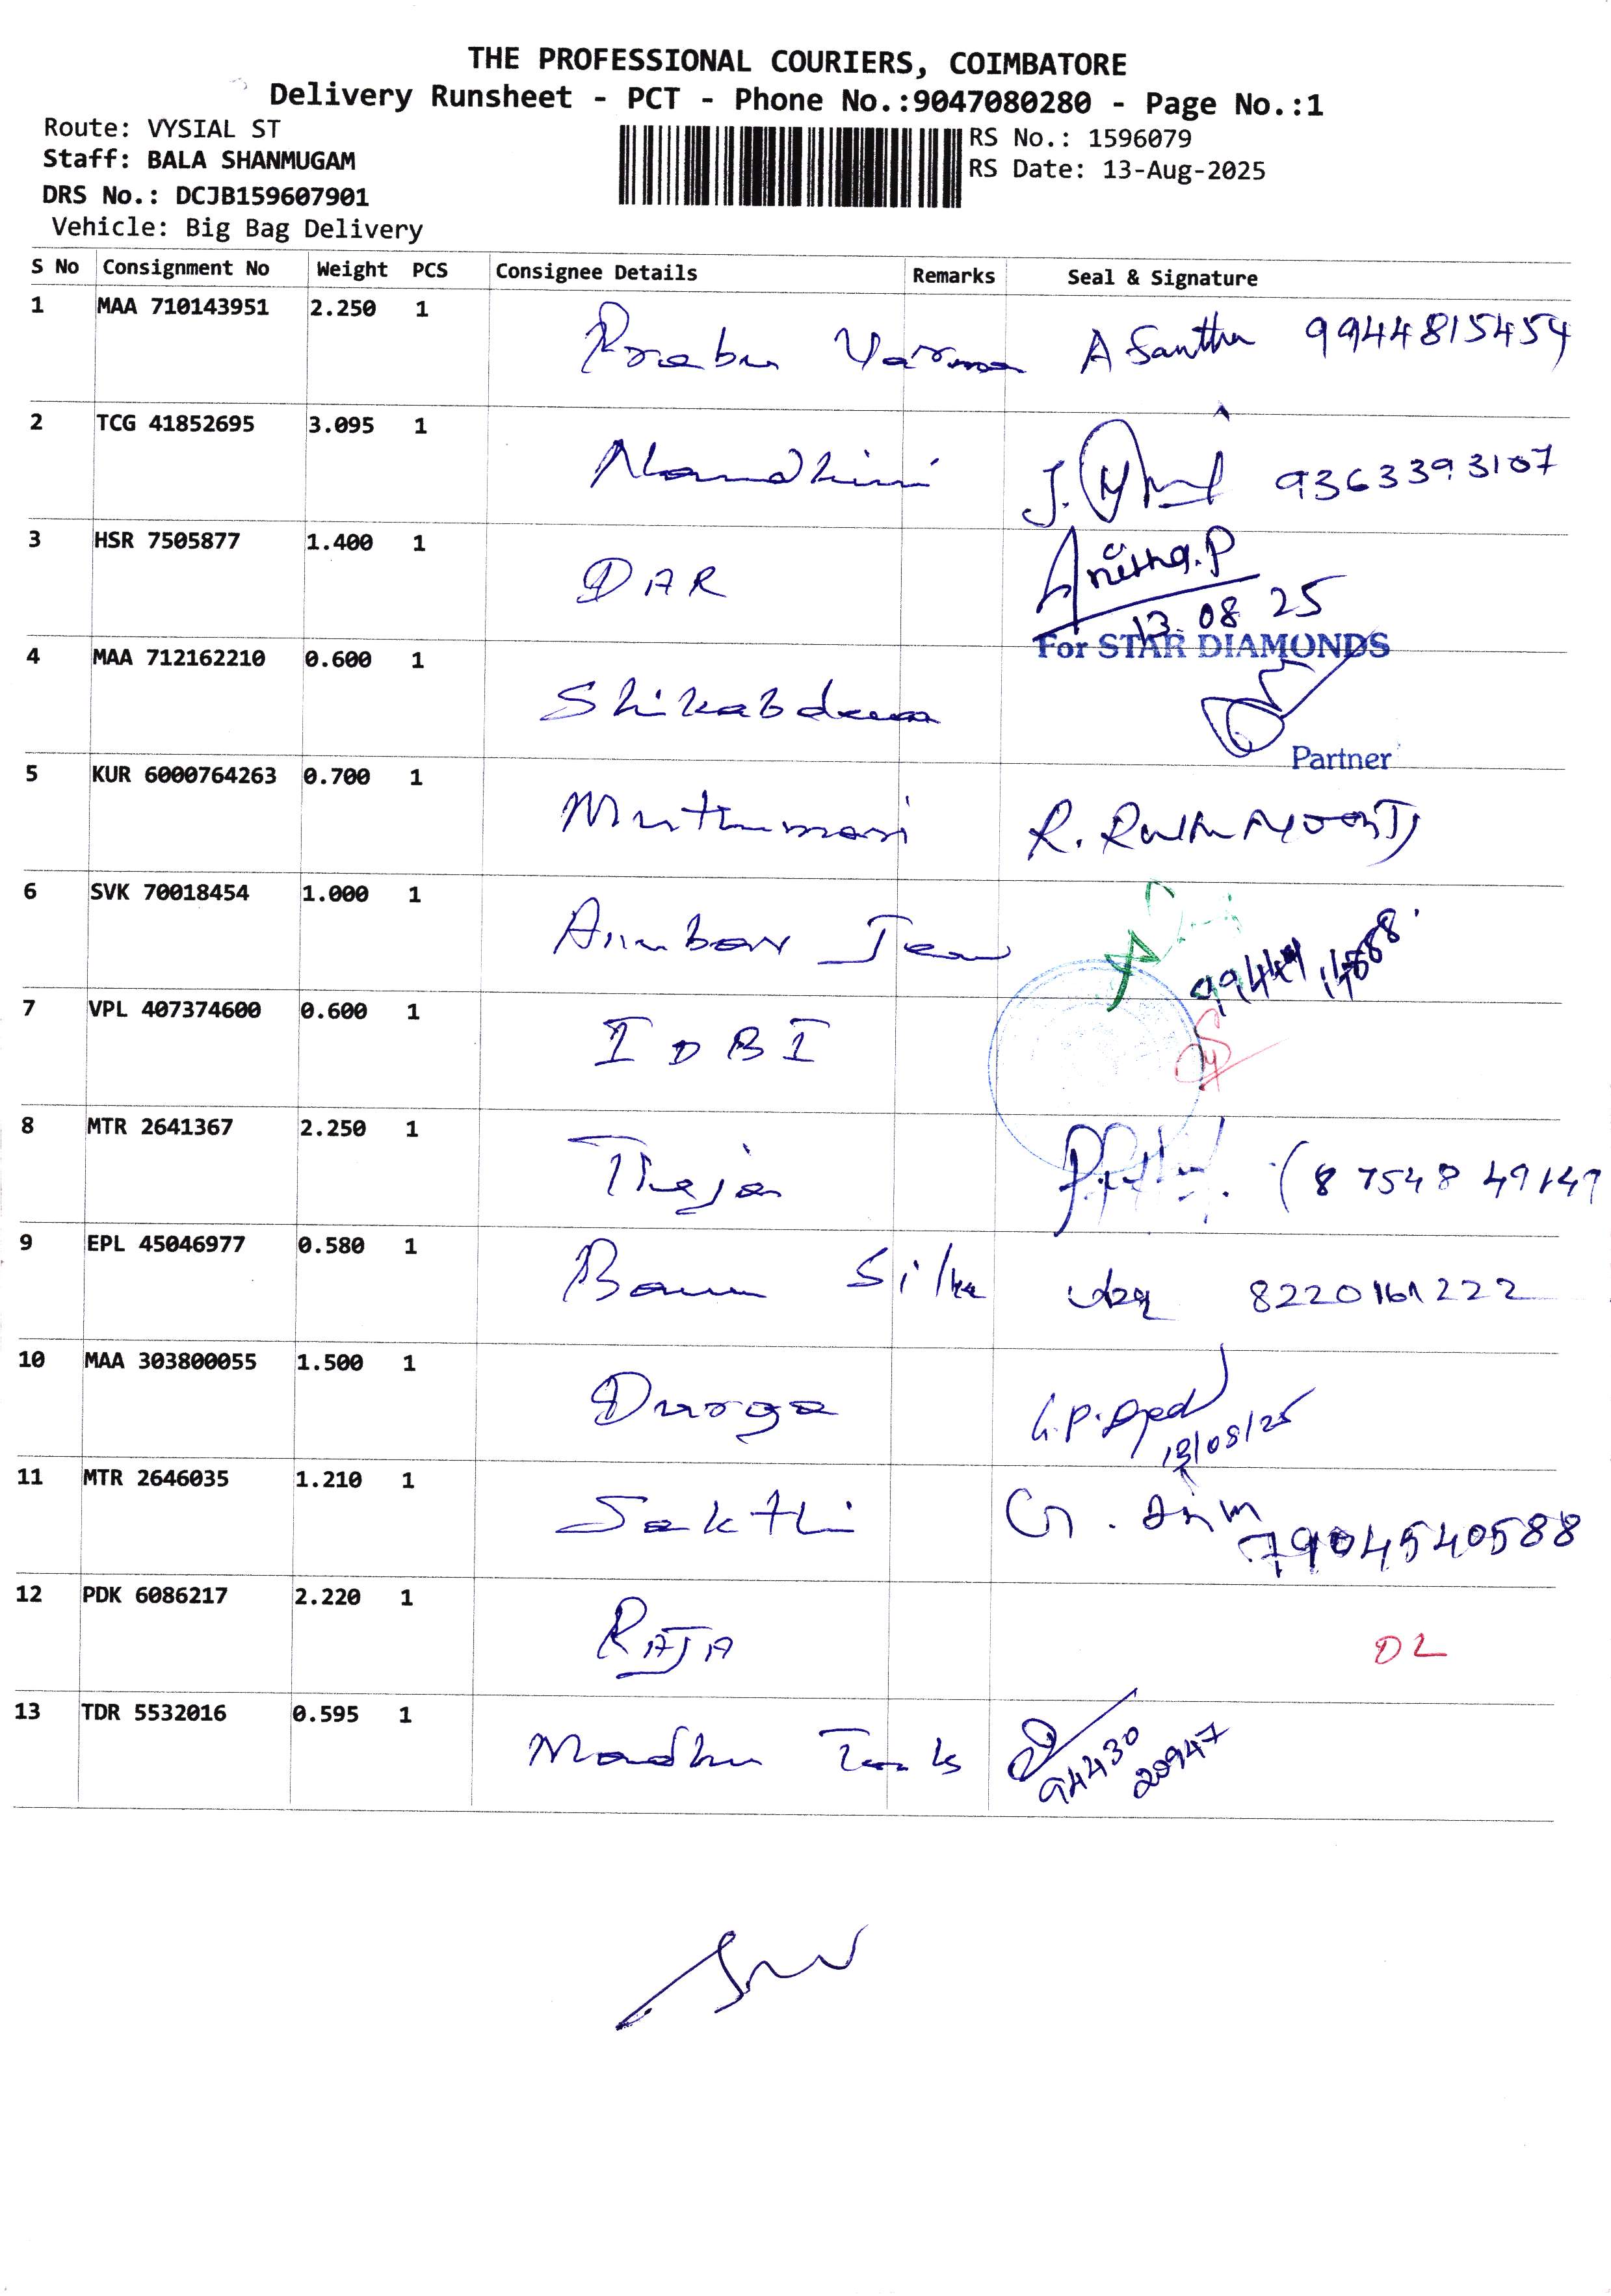 THE PROFESSIONAL COURIERS, COIMBATORE
Delivery Runsheet - PCT - Phone No.:9047080280 - Page No.:1
Route: VYSIAL ST
RS No.: 1596079
Staff: BALA SHANMUGAM
RS Date: 13-Aug-2025
DRS No.: DCJB159607901
Vehicle: Big Bag Delivery
S No Consignment No Weight PCS Consignee Details Remarks Seal & Signature
1 MAA 710143951 2.250 1 Prabu Varma A Santhu 9944815454
2 TCG 41852695 3.095 1 Nandhini J. 9363393107
3 HSR 7505877 1.400 1 DAR Anitha.P
13.08 25
For STAR DIAMONDS
4 MAA 712162210 0.600 1
Partner
5 KUR 6000764263 0.700 1 Muthumari R.
6 SVK 70018454 1.000 1
7 VPL 407374600 0.600 1 IDBI
8 MTR 2641367 2.250 1 Theja (8754849149
9 EPL 45046977 0.580 1 8220161222
10 MAA 303800055 1.500 1 Durga
13/08/25
11 MTR 2646035 1.210 1 Sakthi G.
7904540588
12 PDK 6086217 2.220 1 RAJA DL
13 TDR 5532016 0.595 1 Madhu
94430
20947